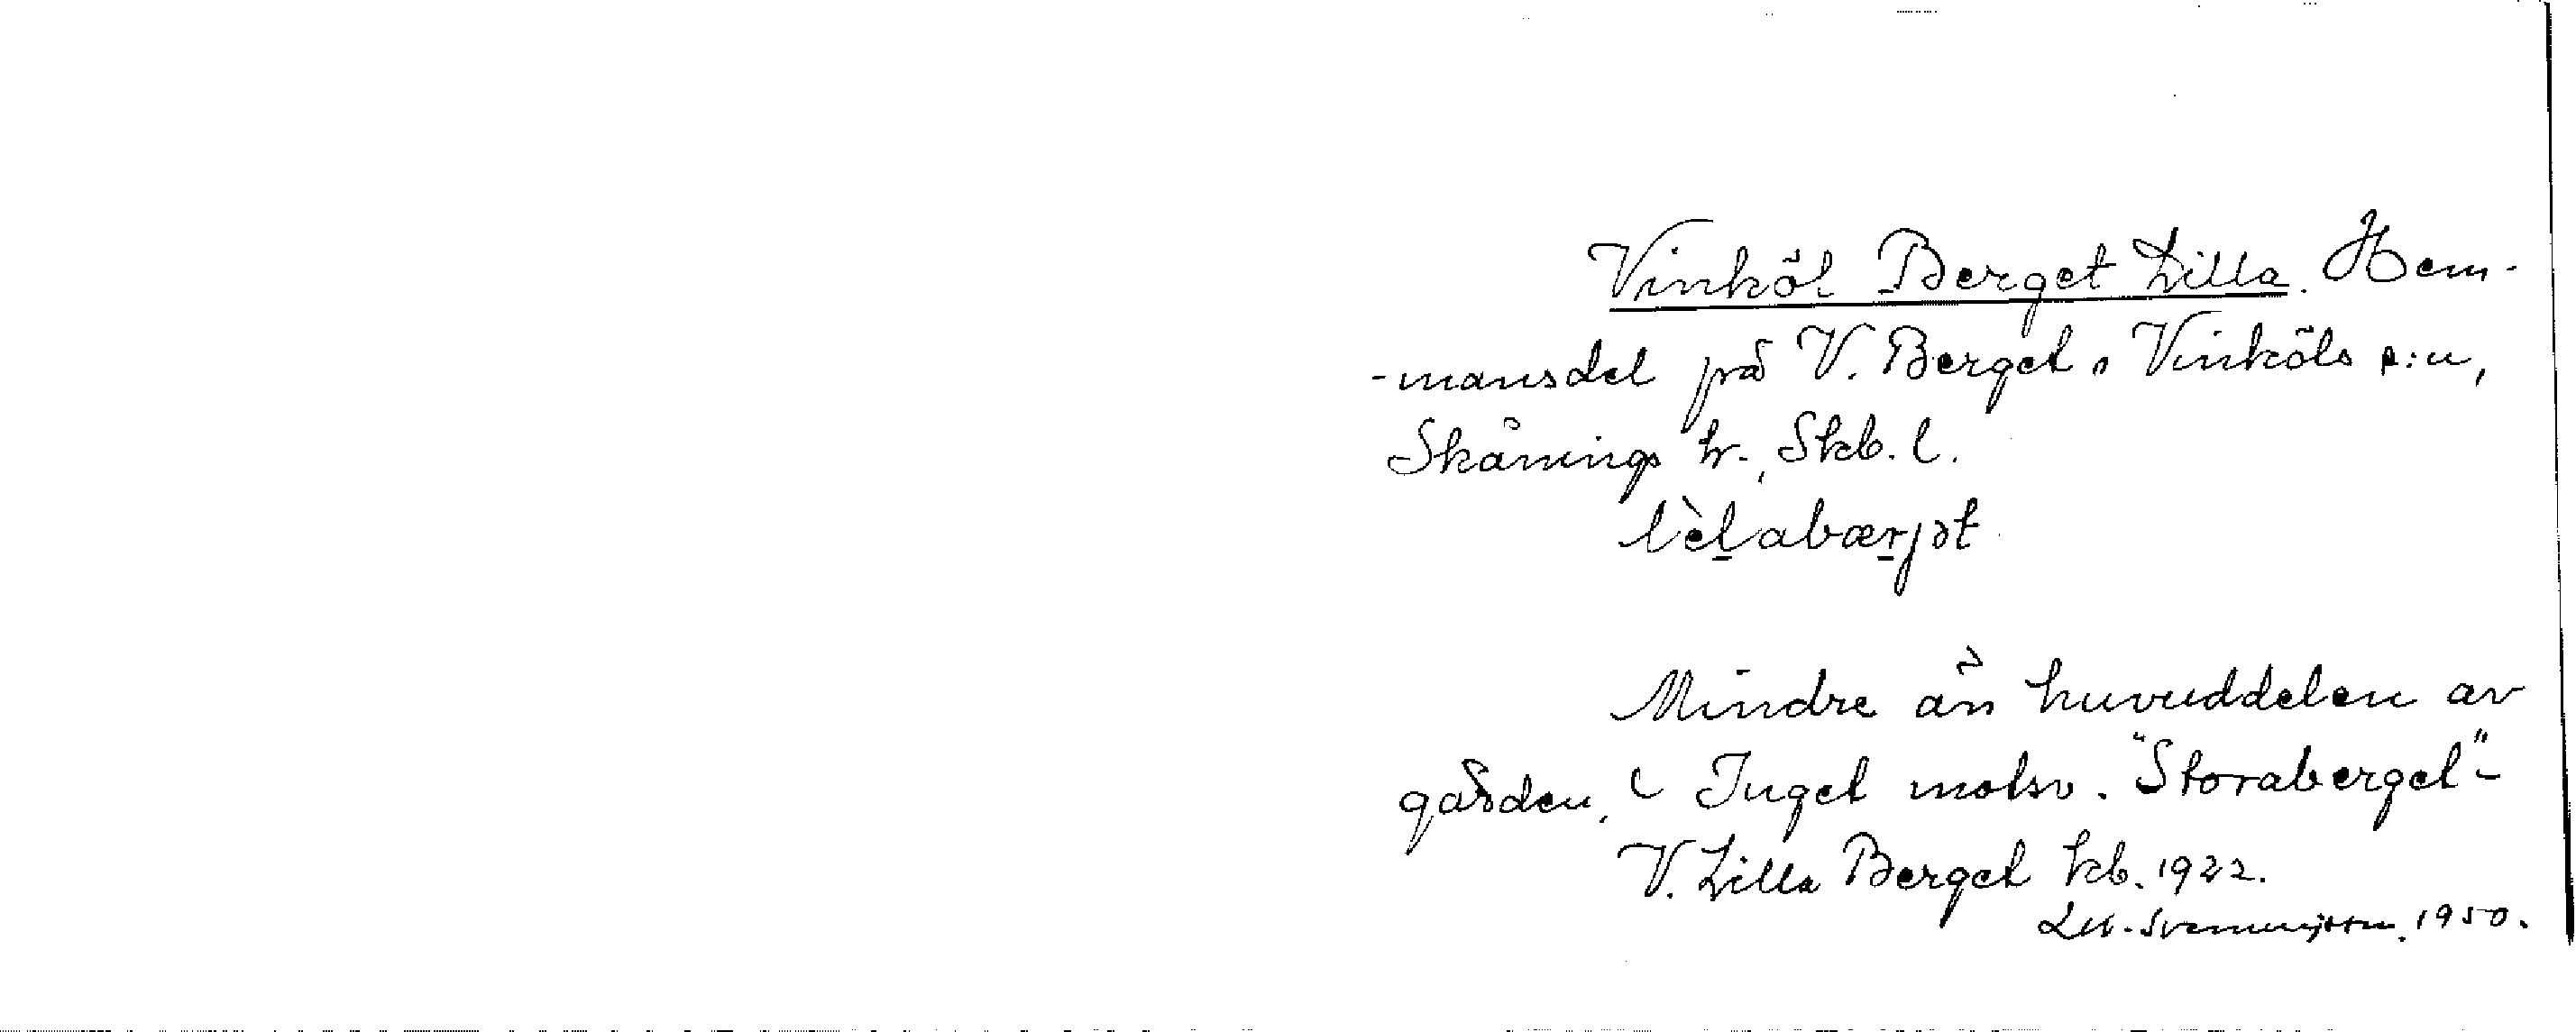 Vinköl Berget Lilla. Hem-
-mansdel på V. Berget, Vinköls s:n,
Skånings hr., Skb. l.
lèl̠abær̠jət
Mindre än huvuddelen av
gården. Inget motsv. "Storaberget"-
V. Lilla Berget kb. 1922.
1950.